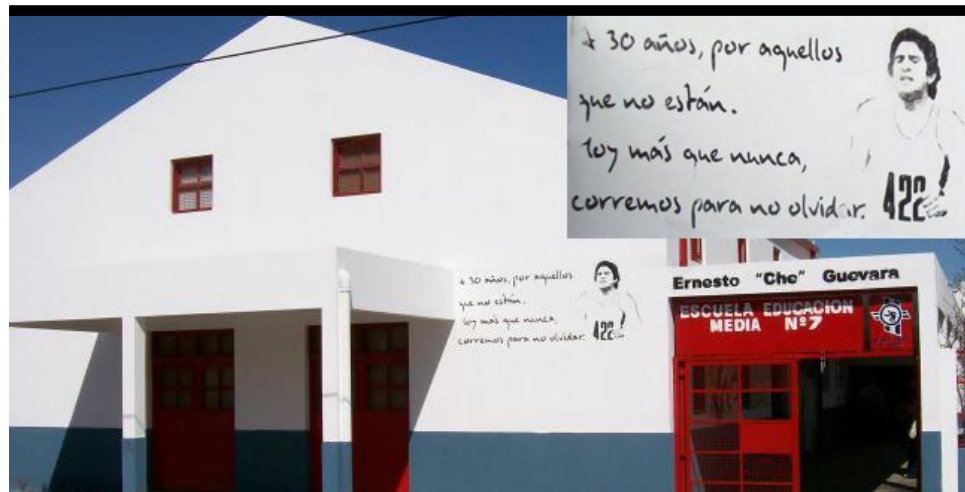 + 30 años, por aquellos
que no están.
Hoy más que nunca,
corremos para no olvidar.
422
+ 30 años, por aquellos
que no están.
Hoy más que nunca,
corremos para no olvidar.
422
Ernesto "Che" Guevara
ESCUELA EDUCACION
MEDIA Nº7